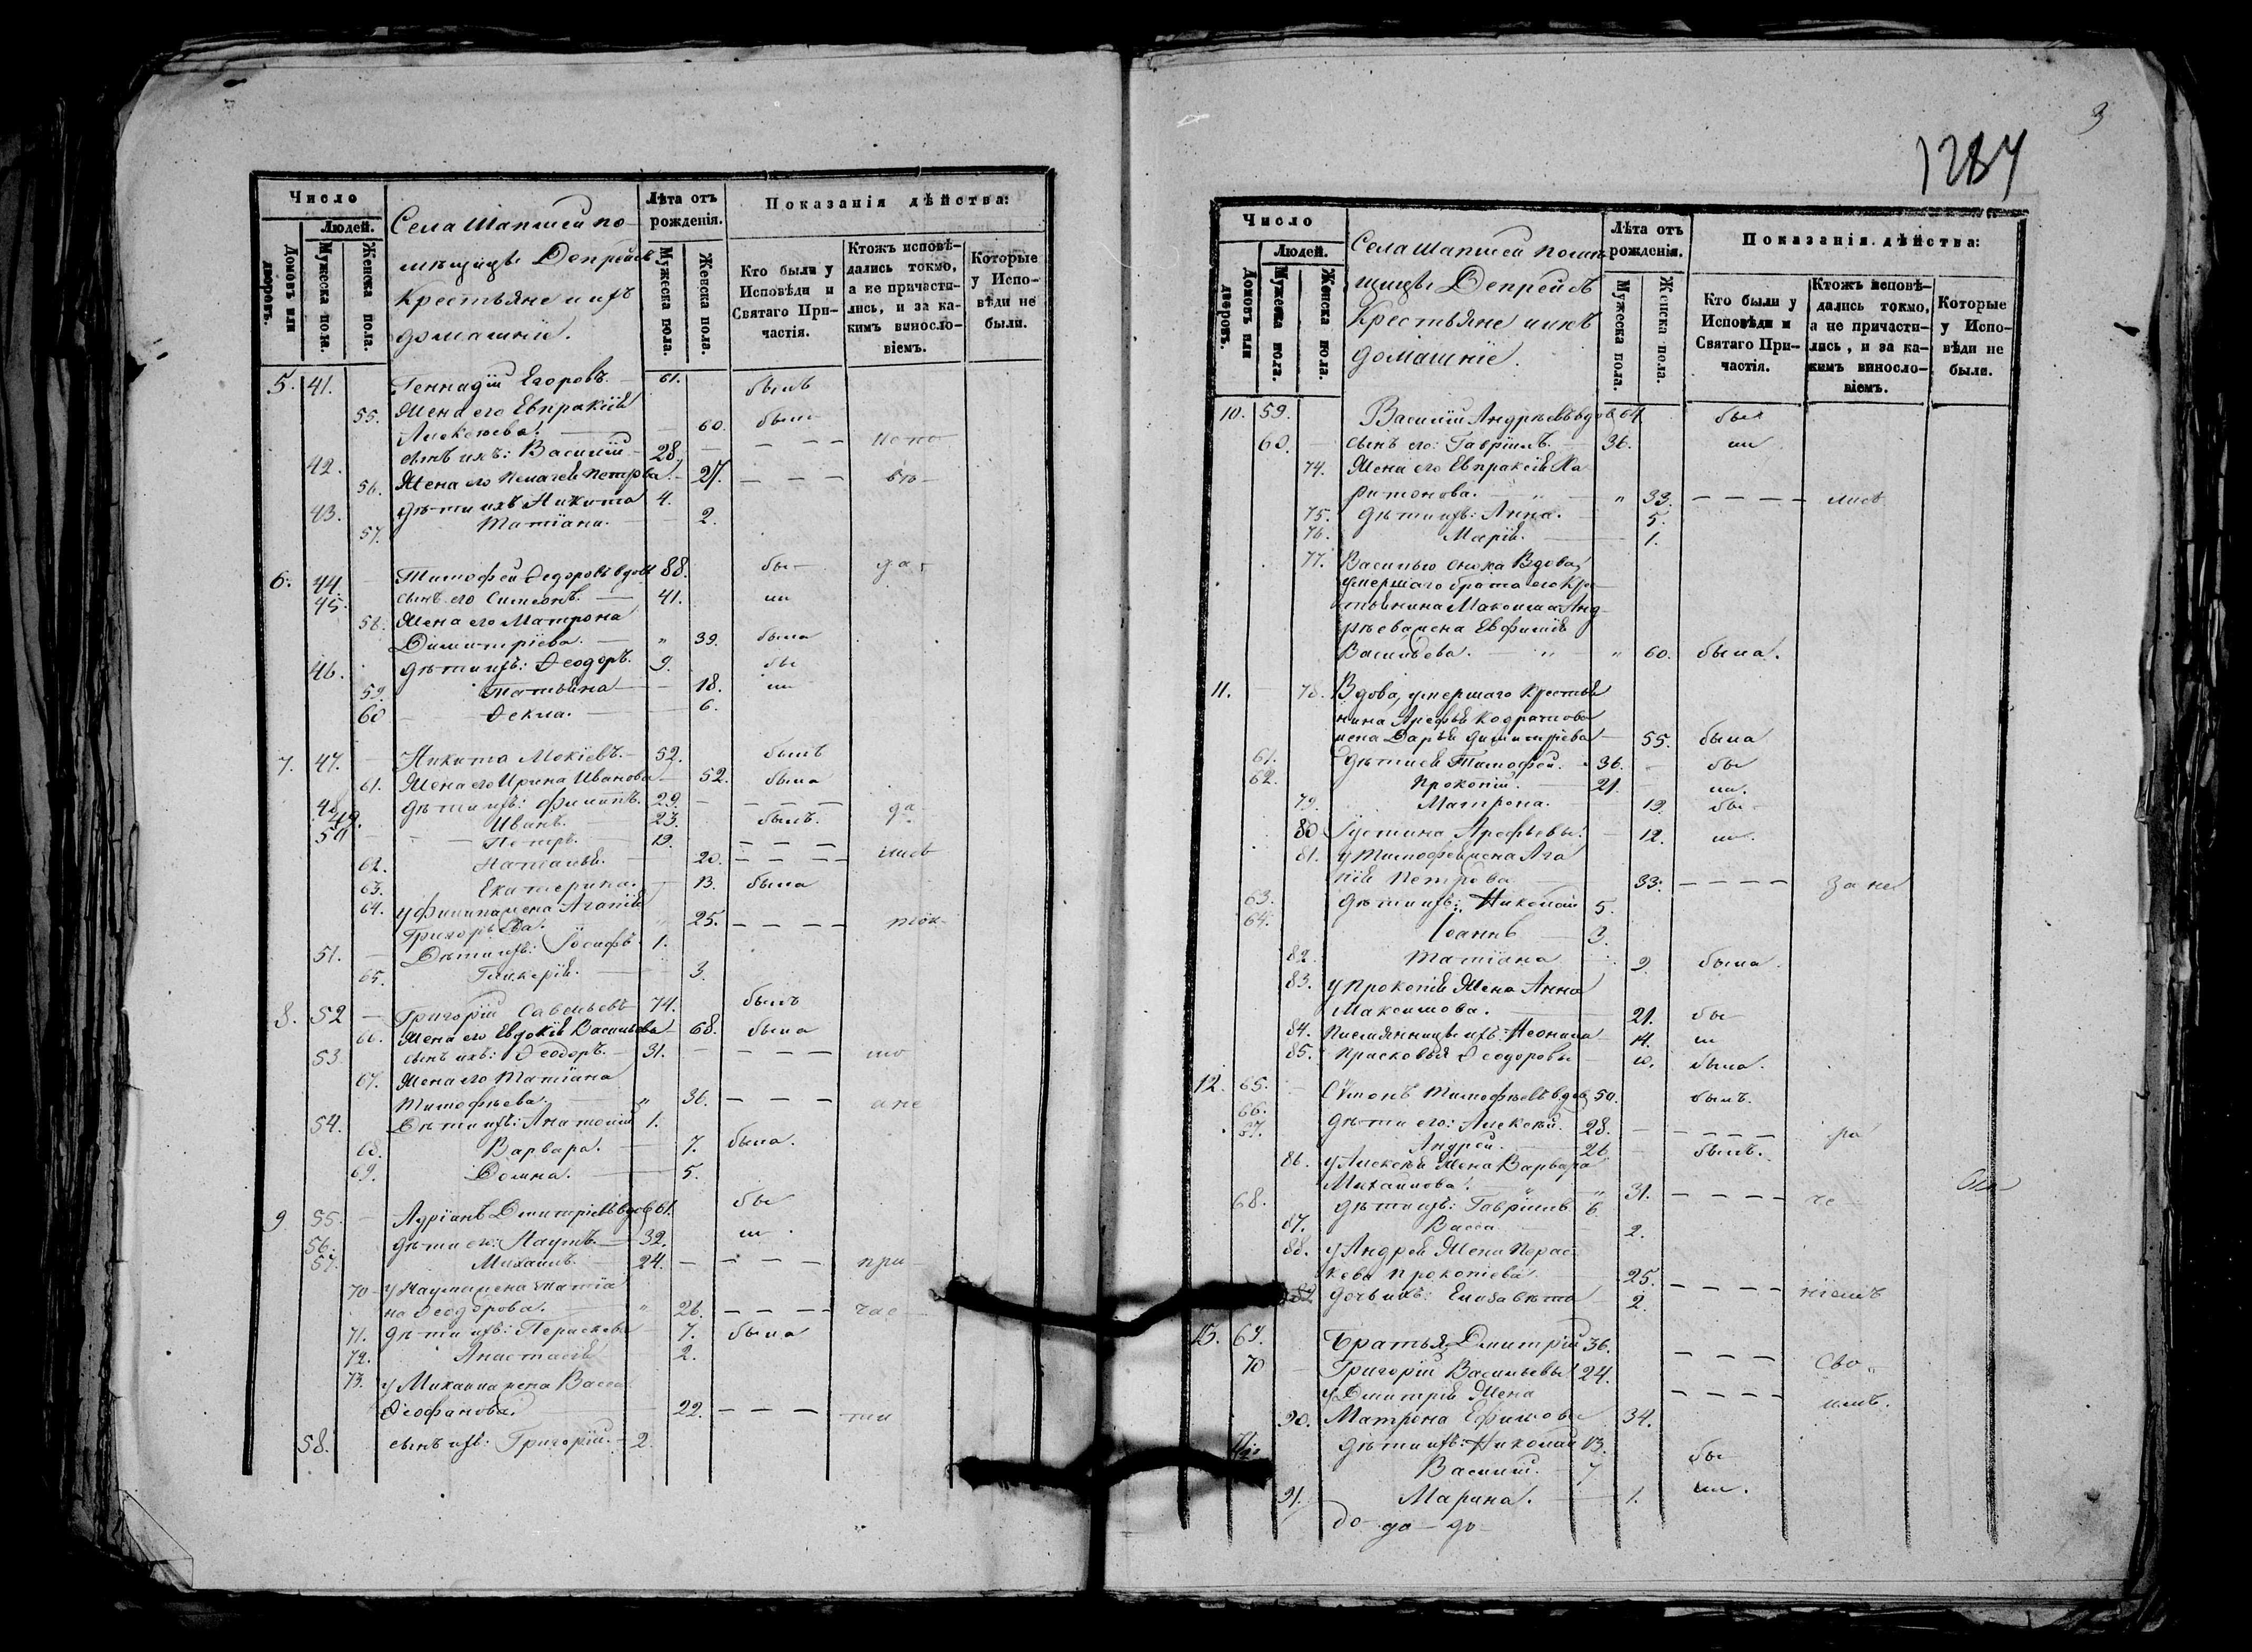 Число
Людей.
Домовъ или дворовъ.
Мужеска пола.
Женска пола.
Села Шапшей по-
мѣщицы Депрейсъ
Крестьяне и ихъ
домашніи.
Лѣта отъ рожденія.
Мужеска пола.
Женска пола.
Показанія дѣйства:
Кто были у Исповѣди и Святаго Причастія.
Ктожъ исповѣ-
дались токмо,
а не причасти-
лись, и за ка-
кимъ винсло-
віемъ.
Которые
у Испо-
вѣди не
были.
5. 41. Геннадій Егоровъ. 61. былъ
55. Жена его Евпраксія
Алексѣева. 60. была
42. сынъ ихъ: Василій 28. — — — испо-
56. Жена его Пелагея Петрова. 27. — — — вѣ-
43. дѣти ихъ Никита 4.
57. Татіана. 2.
6. 44. Тимофей Ѳедоровъ вдовъ 88. бы- да-
45. сынъ его Симеонъ. 41. ли
58. Жена его Матрона
Димитріева. " 39. была
46. дѣти ихъ: Ѳеодоръ. 9. бы
59. Татьяна 18. ли
60 Ѳекла. 6.
7. 47. Никита Мокіевъ. 52. былъ
61. Жена его Ирина Иванова 52. была
48. дѣти ихъ: Филиппъ. 29. — — — да-
49. Иванъ. 23. былъ.
50 Петръ. 19. — — —
62. Наталья. 20. — — — лись
63. Екатерина. 13. была
64. у Филиппа жена Агапія
Григорьева. " 25. — — — — ток-
51. Дѣти ихъ: Іосифъ 1.
65. Гликерія. 3.
8. 52 Григорій Савельевъ 74. былъ
66. Жена его Евдокія Васильева 68. была
53 сынъ ихъ: Ѳеодоръ. 31. — — — мо
67. Жена его Татіана
Тимофѣева. " 36. — — — а не
54. Дѣти ихъ: Анатолій 1.
68. Варвара. 7. была.
69. Домна. 5.
9 55. Адріанъ Дмитріевъ вдовъ 61. бы
56. дѣти его: Наумъ. 32. ли
57. Михаилъ. 24. — — — — при
70 у Наума жена Татіа
на Ѳеодорова. " 26. — — — — час
71. дѣти ихъ: Параскева 7. была
72. Анастасія 2.
73. у Михаила жена Васса
Ѳеофанова. 22. — — — ти
58. сынъ ихъ: Григорій. 2.
3
1284
Число
Людей.
Домовъ или дворовъ.
Мужеска пола.
Женска пола.
Села Шапшей помѣ-
щицы Депрейсъ
Крестьяне и ихъ
домашніе.
Лѣта отъ рожденія.
Мужеска пола.
Женска пола.
Показанія дѣйства:
Кто были у Исповѣди и Святаго Причастія.
Ктожъ исповѣ-
дались токмо,
а не причасти-
лись, и за ка-
кимъ винсло-
віемъ.
Которые
у Испо-
вѣди не
были.
10. 59. Василій Андреевъ вдов. 64. бы
60. сынъ его: Гавріилъ. 36. ли
74. Жена его Евпраксія Ха
ритонова. " " 33. — — — — лись
75. дѣти ихъ: Анна. 5.
76. Марія. 1.
77. Василью сноха Вдова,
умершаго брата его Кре
стьянина Максима Анд
рѣева жена Евфимія
Васильева. " " 60. была.
11. 78. Вдова, умершаго Крестья
нина Арефья Кодратова
жена Дарья Димитріева 55. была
61. дѣти ея Тимофей. 36. бы
62. Прокопій. 21. ли.
79. Матрона. 19. бы
80 Іустина Арефьевы. 12. ли.
81. у Тимофея жена Ага
пія Петрова 33. — — — — За не
63. дѣти ихъ: Николай 5.
64. Іоаннъ 3.
82. Татіана 9. была.
83. у Прокопія Жена Анна
Максимова. 21. бы
84. Племянницы ихъ: Неонила 14. ли
85. Прасковья Ѳеодоровы 10. была.
12. 65. Сѵмонъ Тимофѣевъ вдов. 50. былъ.
66. дѣти его: Алексѣй. 28. — — — — ра
67. Андрей. 26 былъ.
86. у Алексѣя Жена Варвара
Михаилова. " " 31. — — — — че
68. дѣти ихъ: Гавріилъ 6.
87. Васса 2.
88. у Андрея Жена Парас
кева Прокопіева. 25. — — — — ніемъ
89 дочь ихъ: Елисавета 2.
13. 69. Братья Дмитрій 36.
70 Григорій Васильевы 24. — — — Сво-
у Дмитрія Жена
90. Матрона Ефимова 34. — — — — имъ.
дѣти ихъ: Николай 13. бы
Василій. 7
91. Марина. 1. ли.